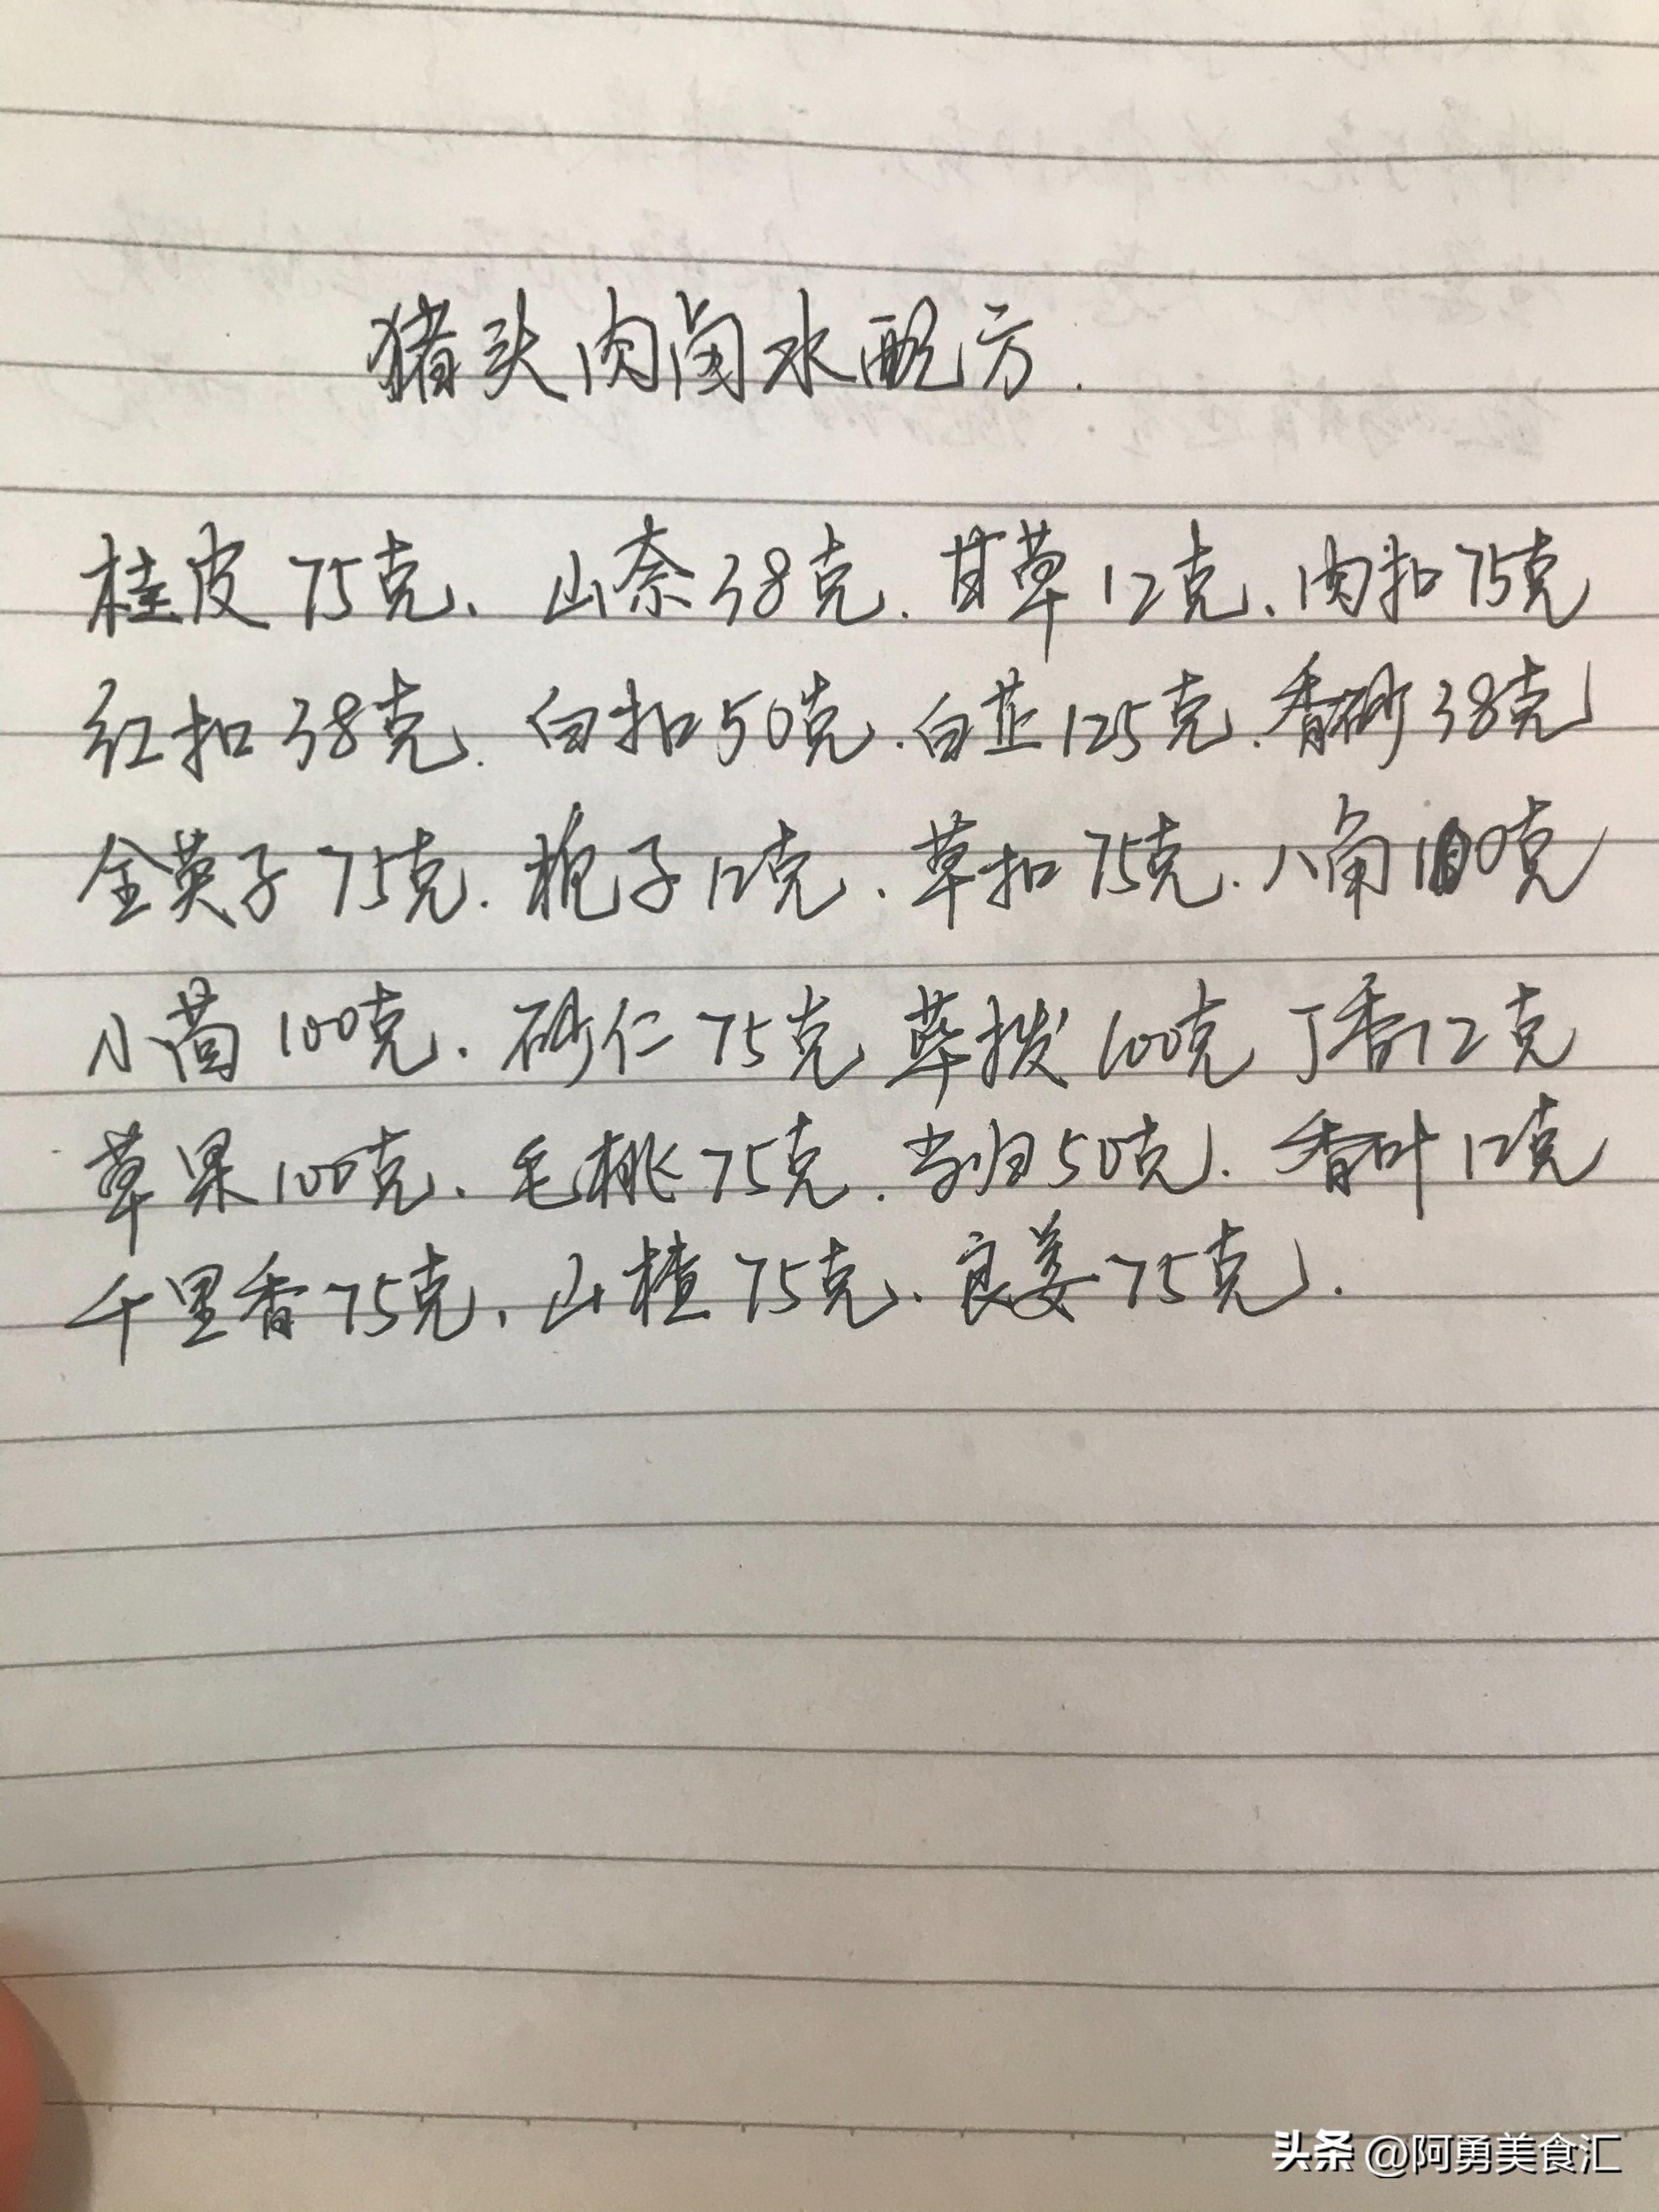 猪头肉卤水配方.
桂皮75克、山奈38克.甘草12克、肉扣75克
红扣38克.白扣50克.白芷125克.香砂38克
金英子75克.栀子12克、草扣75克.八角100克
小茴100克.砂仁75克 荜拨100克 丁香12克
草果100克、毛桃75克.当归50克.香叶12克
千里香75克、山楂75克、良姜75克.
头条@阿勇美食汇